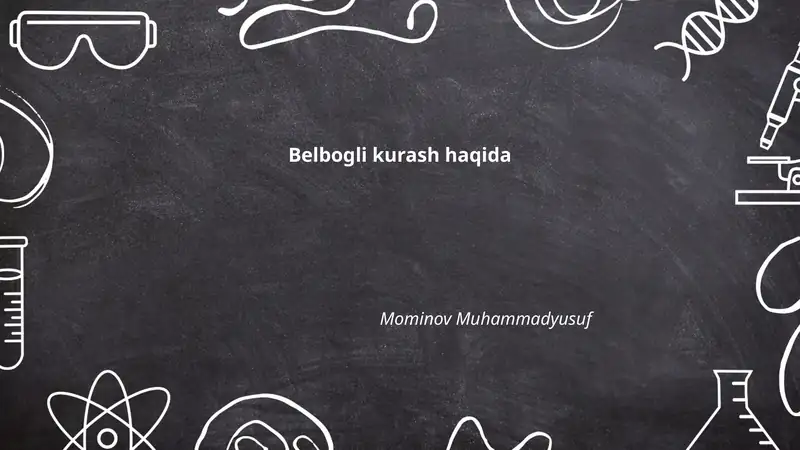 Belbogli kurash haqida
Mominov Muhammadyusuf